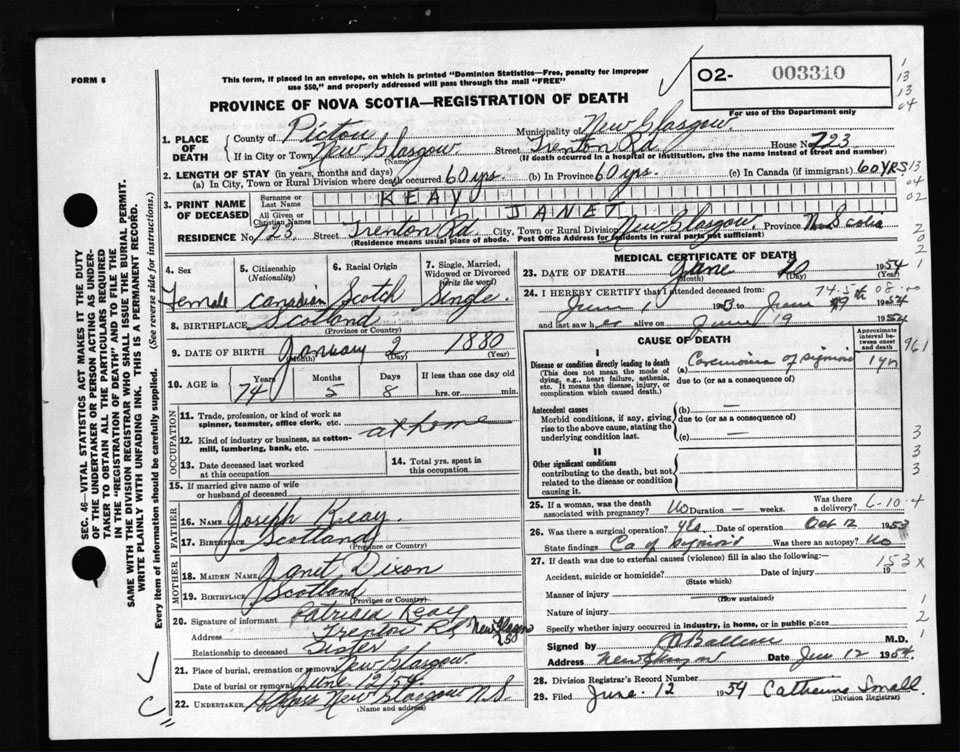 FORM 6
This form, if placed in an envelope, on which is printed "Dominion Statistics—Free, penalty for improper
use $50," and properly addressed will pass through the mail "FREE"
O2- 003310
For use of the Department only
1
13
13
04
PROVINCE OF NOVA SCOTIA—REGISTRATION OF DEATH
1. PLACE OF DEATH County of Pictou Municipality of New Glasgow
If in City or Town New Glasgow (Name) Street Trenton Rd House No. 723
(If death occurred in a hospital or institution, give the name instead of street and number)
2. LENGTH OF STAY (in years, months and days)
(a) In City, Town or Rural Division where death occurred 60 yrs. (b) In Province 60 yrs. (c) In Canada (if immigrant) 60 YRS
13
04
02
3. PRINT NAME OF DECEASED Surname or Last Name KEAY
All Given or Christian Names JANET
RESIDENCE No. 723 Street Trenton Rd. City, Town or Rural Division New Glasgow Province Nova Scotia
(Residence means usual place of abode. Post Office Address for residents in rural parts not sufficient)
2
0
2
1
4. Sex Female
5. Citizenship (Nationality) Canadian
6. Racial Origin Scotch
7. Single, Married, Widowed or Divorced (write the word) Single
8. BIRTHPLACE Scotland (Province or Country)
9. DATE OF BIRTH January (Month) 2 (Day) 1880 (Year)
10. AGE in Years 74 Months 5 Days 8 If less than one day old hrs. or min.
OCCUPATION
11. Trade, profession, or kind of work as spinner, teamster, office clerk, etc. at home
12. Kind of industry or business, as cotton-mill, lumbering, bank, etc.
13. Date deceased last worked at this occupation
14. Total yrs. spent in this occupation
15. If married give name of wife or husband of deceased
FATHER
16. NAME Joseph Keay
17. BIRTHPLACE Scotland (Province or Country)
MOTHER
18. MAIDEN NAME Janet Dixon
19. BIRTHPLACE Scotland (Province or Country)
20. Signature of informant Patricia Keay
Address Trenton Rd New Glasgow
Relationship to deceased Sister
21. Place of burial, cremation or removal New Glasgow
Date of burial or removal June 12/54
22. UNDERTAKER Ross New Glasgow N.S.
(Name and address)
MEDICAL CERTIFICATE OF DEATH
23. DATE OF DEATH June (Month) 10 (Day) 1954 (Year)
24. I HEREBY CERTIFY that I attended deceased from 74.5 08.00
June 1 1953 to June 9 1954
and last saw her alive on June 9 1954
CAUSE OF DEATH
Approximate interval between onset and death
I
Disease or condition directly leading to death
(This does not mean the mode of dying, e.g., heart failure, asthenia, etc. It means the disease, injury, or complication which caused death.)
(a) Carcinoma of sigmoid 1 yr
961
due to (or as a consequence of)
Antecedent causes
Morbid conditions, if any, giving rise to the above cause, stating the underlying condition last.
(b) —
due to (or as a consequence of)
(c) —
3
3
3
II
Other significant conditions
contributing to the death, but not related to the disease or condition causing it.
25. If a woman, was the death associated with pregnancy? No Duration — weeks. Was there a delivery? 6-10-4
26. Was there a surgical operation? Yes Date of operation Oct 12 1953
State findings Ca of sigmoid Was there an autopsy? No
27. If death was due to external causes (violence) fill in also the following:—
153 X
Accident, suicide or homicide? (State which) Date of injury 19
Manner of injury (How sustained)
Nature of injury
1
2
1
Specify whether injury occurred in industry, in home, or in public place
Signed by M.D.
Address New Glasgow Date June 12 1954.
28. Division Registrar's Record Number
29. Filed June 12 1954 Catherine Small (Division Registrar)
SEC. 46—VITAL STATISTICS ACT MAKES IT THE DUTY
OF THE UNDERTAKER OR PERSON ACTING AS UNDER-
TAKER TO OBTAIN ALL THE PARTICULARS REQUIRED
IN THE "REGISTRATION OF DEATH" AND TO FILE THE
SAME WITH THE DIVISION REGISTRAR WHO SHALL ISSUE THE BURIAL PERMIT.
WRITE PLAINLY WITH UNFADING INK. THIS IS A PERMANENT RECORD.
Every item of information should be carefully supplied. (See reverse side for instructions.)
C